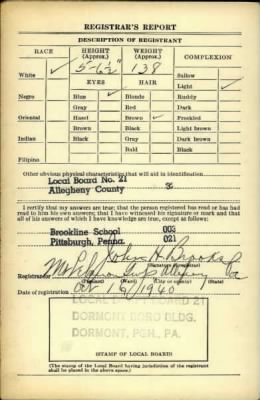 REGISTRAR'S REPORT
DESCRIPTION OF REGISTRANT
RACE HEIGHT (Approx.) WEIGHT (Approx.) COMPLEXION
5-6½" 138
White ✓ Sallow
EYES HAIR Light ✓
Negro Blue ✓ Blonde Ruddy
Gray Red Dark
Oriental Hazel Brown ✓ Freckled
Brown Black Light brown
Indian Black Gray Dark brown
Bald Black
Filipino
Other obvious physical characteristics that will aid in identification
Local Board No. 21
Allegheny County
I certify that my answers are true; that the person registered has read or has had
read to him his own answers; that I have witnessed his signature or mark and that
all of his answers of which I have knowledge are true, except as follows:
Brookline School 003
Pittsburgh, Penna. 021
John H Brooks
(Signature of registrar)
Registrar for Pa
(Precinct) (Ward) (City or county) (State)
Date of registration Oct 16/1940
LOCAL BOARD 21
DORMONT BORO BLDG.
DORMONT, PGH., PA.
(STAMP OF LOCAL BOARD)
(The stamp of the Local Board having jurisdiction of the registrant
shall be placed in the above space.)